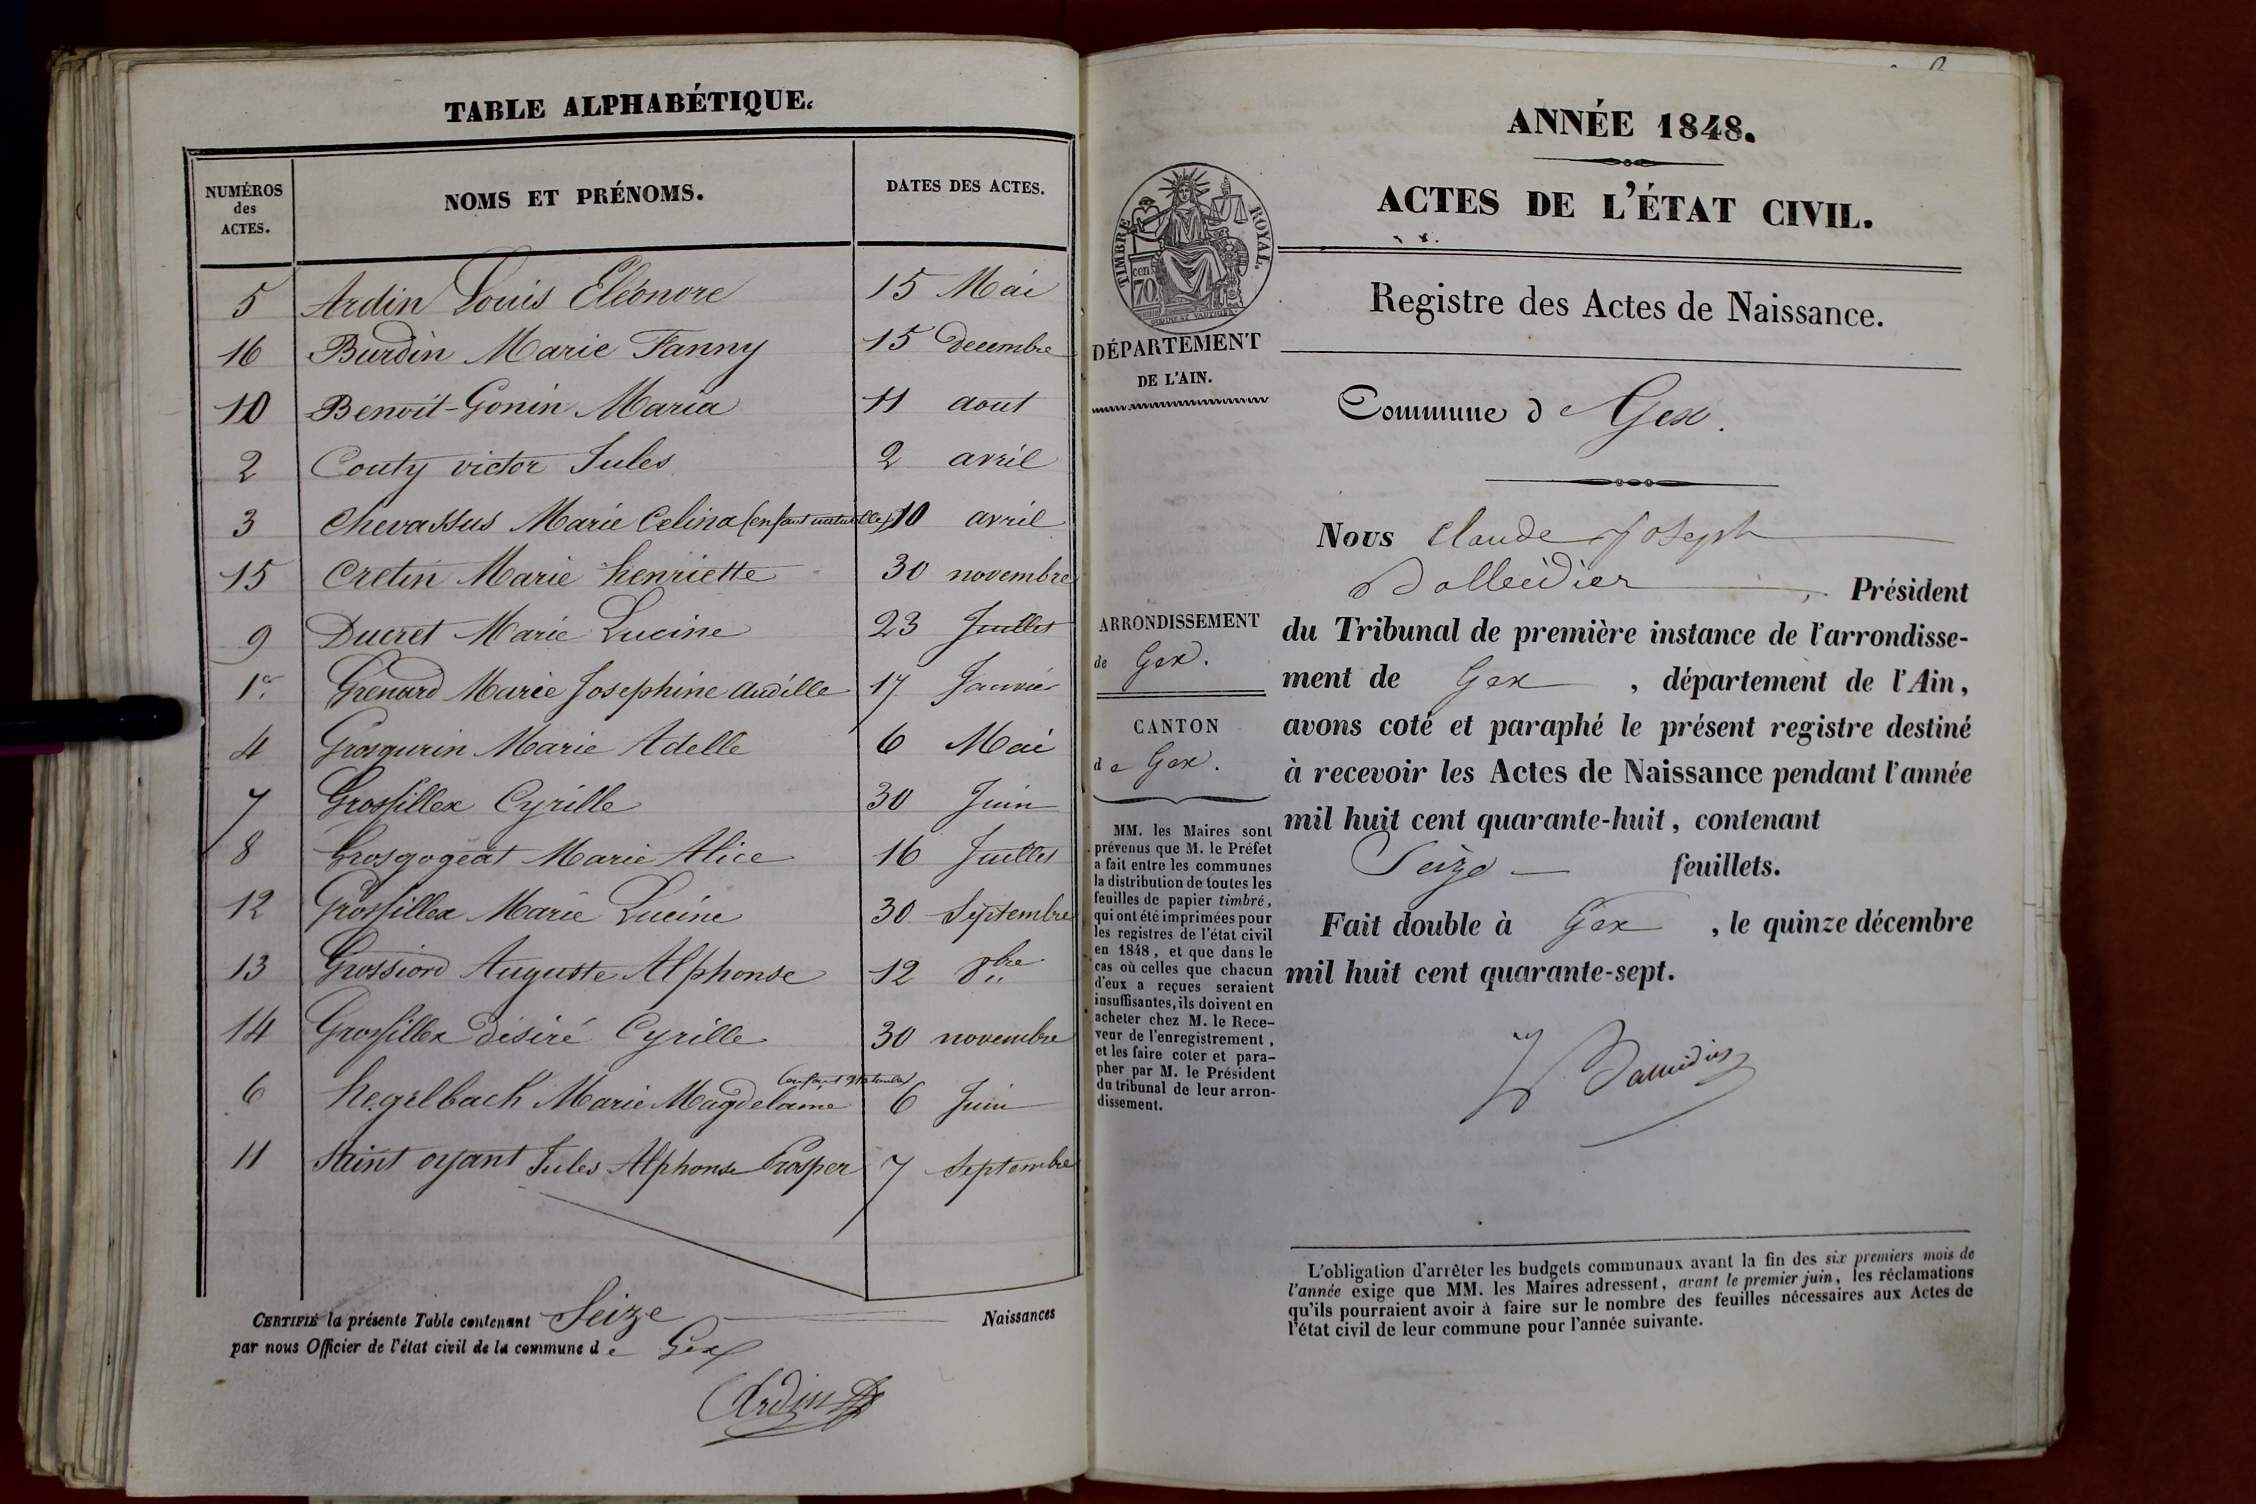 TABLE ALPHABÉTIQUE.
NUMÉROS des ACTES. NOMS ET PRÉNOMS. DATES DES ACTES.
5 Ardin Louis Eléonore 15 Mai
16 Burdin Marie Fanny 15 decembre
10 Benoit-Gonin Maria 11 aout
2 Couty victor Jules 2 avril
3 Chevassus Marie Celina (enfant naturelle) 10 avril
15 Cretin Marie henriette 30 novembre
9 Ducret Marie Lucine 23 Juillet
1er Grenard Marie Josephine 17 Janvier
4 Grosgurin Marie Adelle 6 Mai
7 Grosfillex Cyrille 30 Juin
8 Grosgogeat Marie Alice 16 Juillet
12 Grosfillex Marie Lucine 30 Septembre
13 Grossiord Auguste Alphonse 12 8bre
14 Grosfillex désiré Cyrille 30 novembre
6 Marie Magdelaine 6 Juin
11 Saint oyant Jules Alphonse Prosper 7 Septembre
CERTIFIÉ la présente Table contenant Seize Naissances
par nous Officier de l'état civil de la commune de Gex
Ardin
ANNÉE 1848.
ACTES DE L'ÉTAT CIVIL.
TIMBRE ROYAL.
70 cen.
DÉPARTEMENT
DE L'AIN.
Registre des Actes de Naissance.
Commune de Gex.
ARRONDISSEMENT
de Gex.
CANTON
de Gex.
MM. les Maires sont
prévenus que M. le Préfet
a fait entre les communes
la distribution de toutes les
feuilles de papier timbré,
qui ont été imprimées pour
les registres de l'état civil
en 1848, et que dans le
cas où celles que chacun
d'eux a reçues seraient
insuffisantes, ils doivent en
acheter chez M. le Rece-
veur de l'enregistrement,
et les faire coter et para-
pher par M. le Président
du tribunal de leur arron-
dissement.
Nous Claude Joseph
Président
du Tribunal de première instance de l'arrondisse-
ment de Gex, département de l'Ain,
avons coté et paraphé le présent registre destiné
à recevoir les Actes de Naissance pendant l'année
mil huit cent quarante-huit, contenant
Seize feuillets.
Fait double à Gex, le quinze décembre
mil huit cent quarante-sept.
L'obligation d'arrêter les budgets communaux avant la fin des six premiers mois de
l'année exige que MM. les Maires adressent, avant le premier juin, les réclamations
qu'ils pourraient avoir à faire sur le nombre des feuilles nécessaires aux Actes de
l'état civil de leur commune pour l'année suivante.